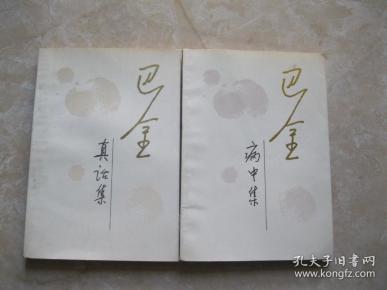 巴金
真话集
巴金
病中集
孔夫子旧书网
www.kongfz.com